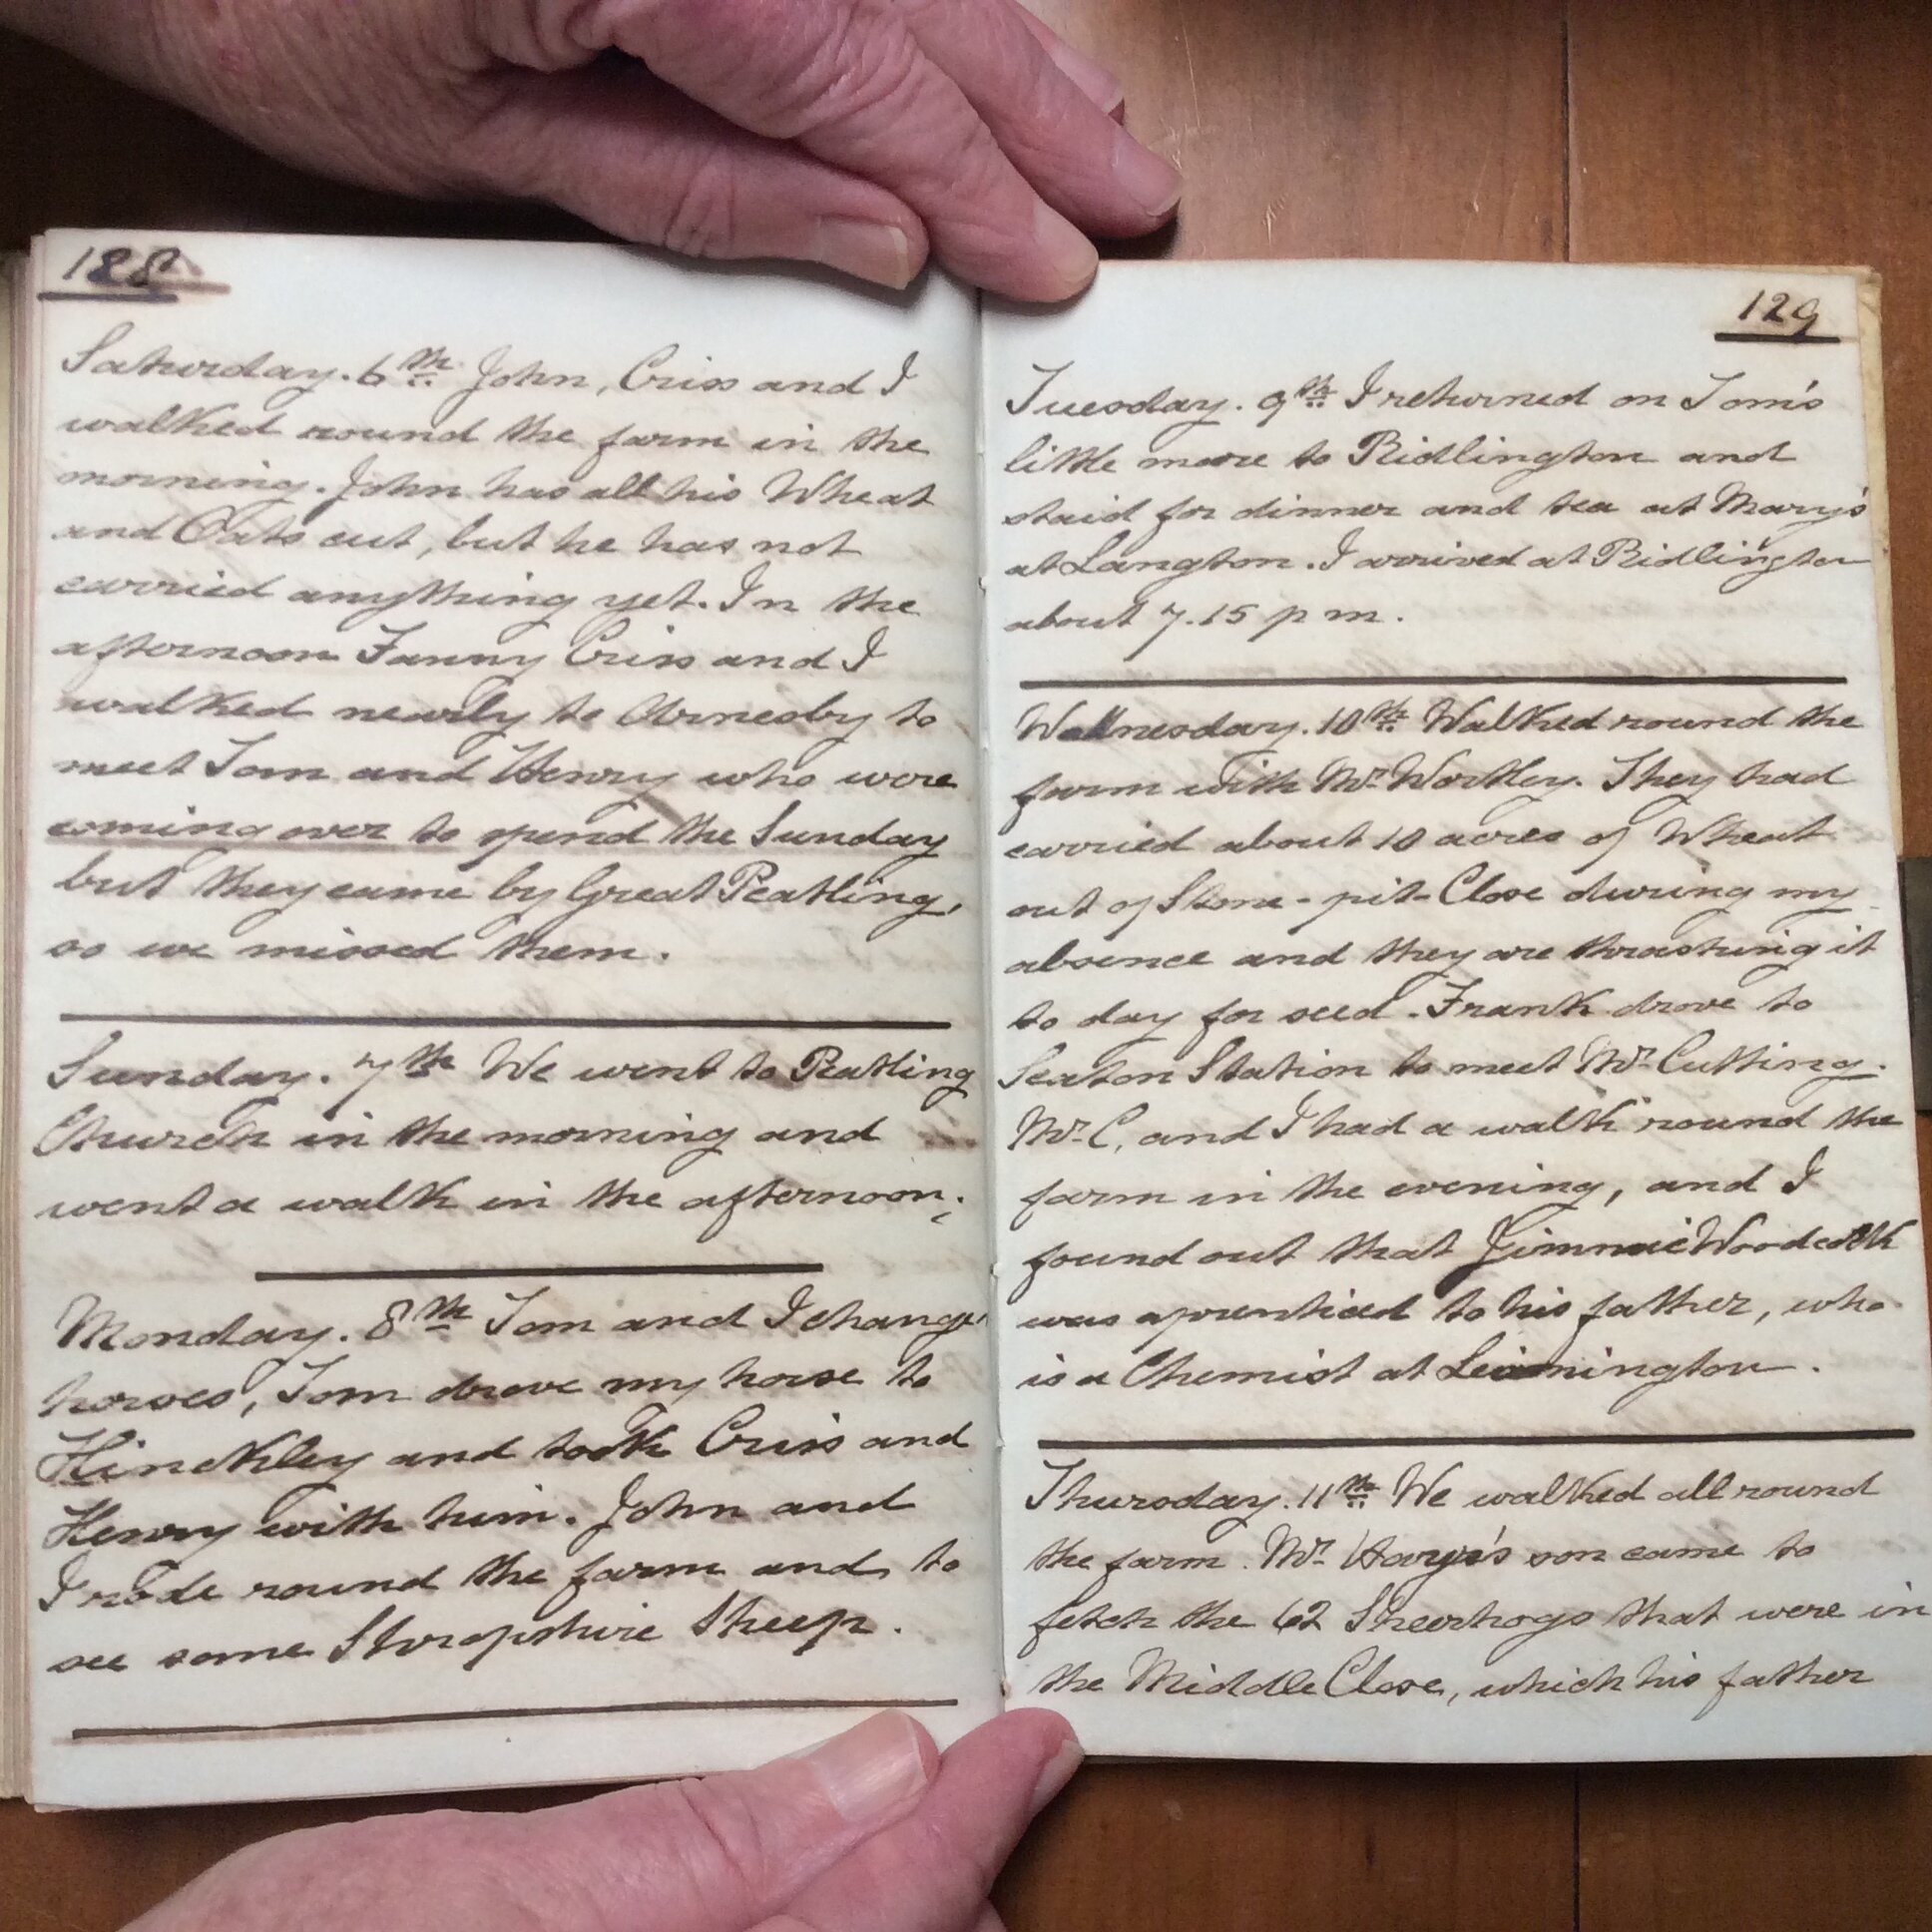 128
Saturday. 6th John, Criss and I
walked round the farm in the
morning. John has all his Wheat
and Oats cut, but he has not
carried anything yet. In the
afternoon Fanny Criss and I
walked nearly to Arnesby to
meet Tom and Henry who were
coming over to spend the Sunday
but they came by Great Peatling,
so we missed them.
Sunday. 7th We went to Peatling
Church in the morning and
went a walk in the afternoon.
Monday. 8th Tom and I change
horses, Tom drove my horse to
Hinckley and took Criss and
Henry with him. John and
I rode round the farm and to
see some Shropshire Sheep.
129
Tuesday. 9th I returned on Tom's
little mare to Ridlington and
staid for dinner and tea at Mary's
at Langton. I arrived at Ridlington
about 7.15 p m.
Wednesday. 10th Walked round the
farm with Mr Wortley. They had
carried about 10 acres of Wheat
out of Stone-pit-Close during my
absence and they are thrashing it
to day for seed. Frank drove to
Seaton Station to meet Mr Cutting.
Mr C, and I had a walk round the
farm in the evening, and I
found out that Jimmie Woodcock
was aprenticed to his father, who
is a Chemist at Leamington.
Thursday. 11th We walked all round
the farm. Mr son came to
fetch the 62 Sheerhogs that were in
the Middle Close, which his father